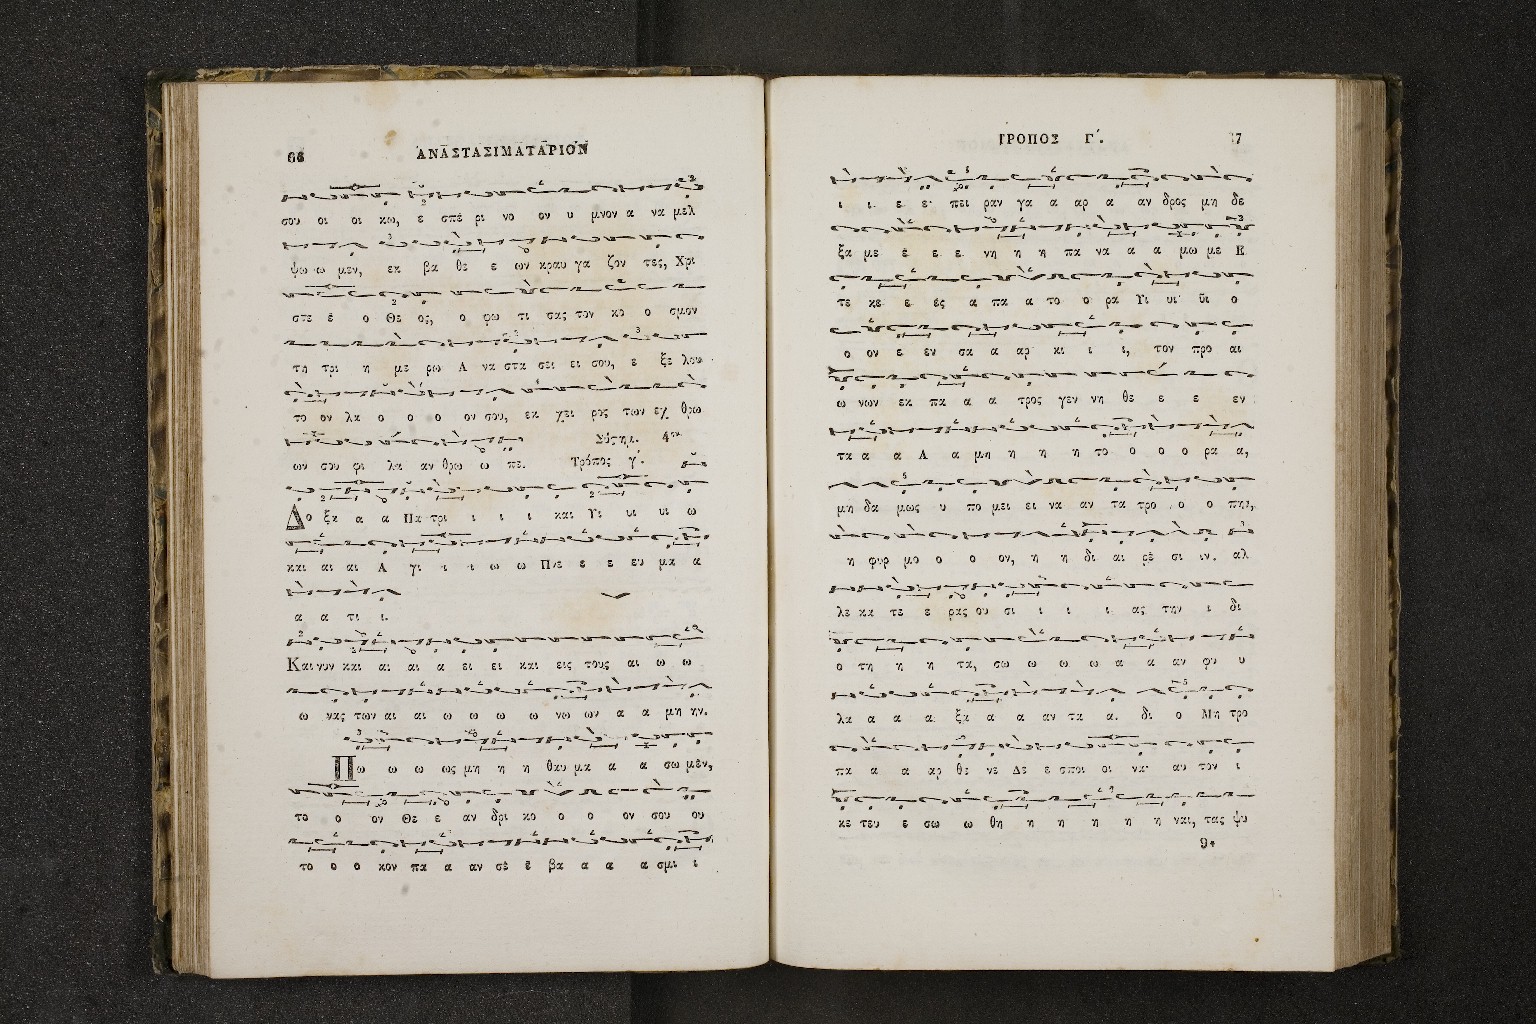 66
ΑΝΑΣΤΑΣΙΜΑΤΑΡΙΟΝ
σου οι οι κω, ε σπε ρι νο ον υ μνον α να μελ
ψω ω μεν, εκ βα θε ε ων κραυ γα ζον τες, Χρι
στε ε ο Θε ος, ο φω τι σας τον κο ο σμον
τη τρι η με ρω Α να στα σει ει σου, ε ξε λου
το ον λα ο ο ο ον σου, εκ χει ρος των εχ θρω
Σύςημ. 4ον
ων σου φι λα αν θρω ω πε. Τρόπος γ΄.
Δο ξα α α Πα τρι ι ι ι και Υι υι υι ω
και αι αι Α γι ι ι ω ω Πνε ε ε ευ μα α
α α τι ι.
Και νυν και αι αι α ει ει και εις τους αι ω ω
ω νας των αι αι ω ω ω ω νω ων α α μη ην.
Πω ω ω ως μη η η θαυ μα α α σω μεν,
το ο ον Θε ε αν δρι κο ο ο ον σου ου
το ο ο κον πα α αν σε ε βα α α α σμι ι
ΤΡΟΠΟΣ Γ΄.
ι ι ε ε πει ραν γα α αρ α αν δρος μη δε
ξα με ε ε ε νη η η πα να α α μω με Ε
τε κε ε ές α πα α το ο ρα Υι υι ϋι ο
ο ον ε εν σα α αρ κι ι ι, τον προ αι
ω νων εκ πα α α τρος γεν νη θε ε ε εν
τα α α Α α μη η η η το ο ο ο ρα α,
μη δα μως υ πο μει ει να αν τα τρο ο ο πην,
η φυρ μο ο ο ον, η η δι αι ρε σι ιν. αλ
λε κα τε ε ρας ου σι ι ι ι ας την ι δι
ο τη η η τα, σω ω ω ω α α αν φυ υ
λα α α α ξα α α αν τα α. δι ο Μη τρο
πα α α αρ θε νε Δε ε σποι οι να αυ τον ι
κε τευ ε σω ω θη η η η η η ναι, τας ψυ
9*